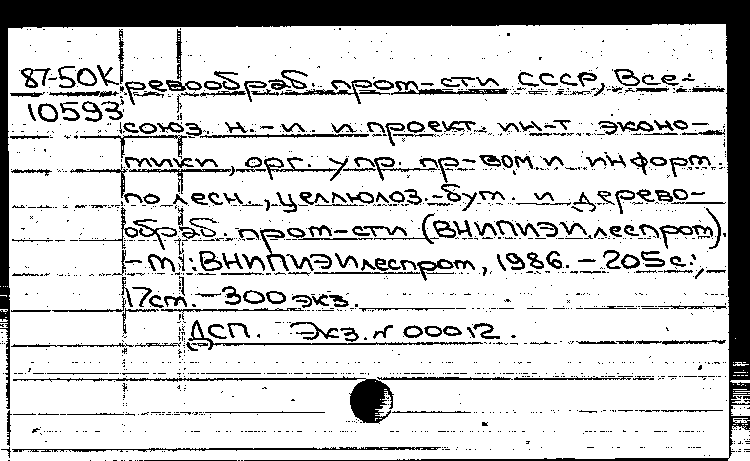 87-50К ревообраб. пром-сти СССР, Все-
10593 союз. н.-и. и проект. ин-т эконо-
мики, орг. упр. пр-вом и информ.
по лесн., целлюлоз.-бум. и дерево-
обраб. пром-сти (ВНИПИЭИлеспром).
- М.: ВНИПИЭИлеспром, 1986. - 205 с.;
17 см. - 300 экз.
ДСП. Экз. № 00012.